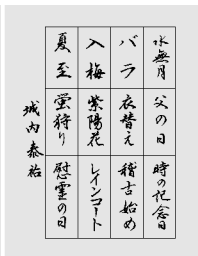 水無月
父の日
時の記念日
バラ
衣替え
稽古始め
入梅
紫陽花
レインコート
夏至
蛍狩り
慰霊の日
城内泰祐